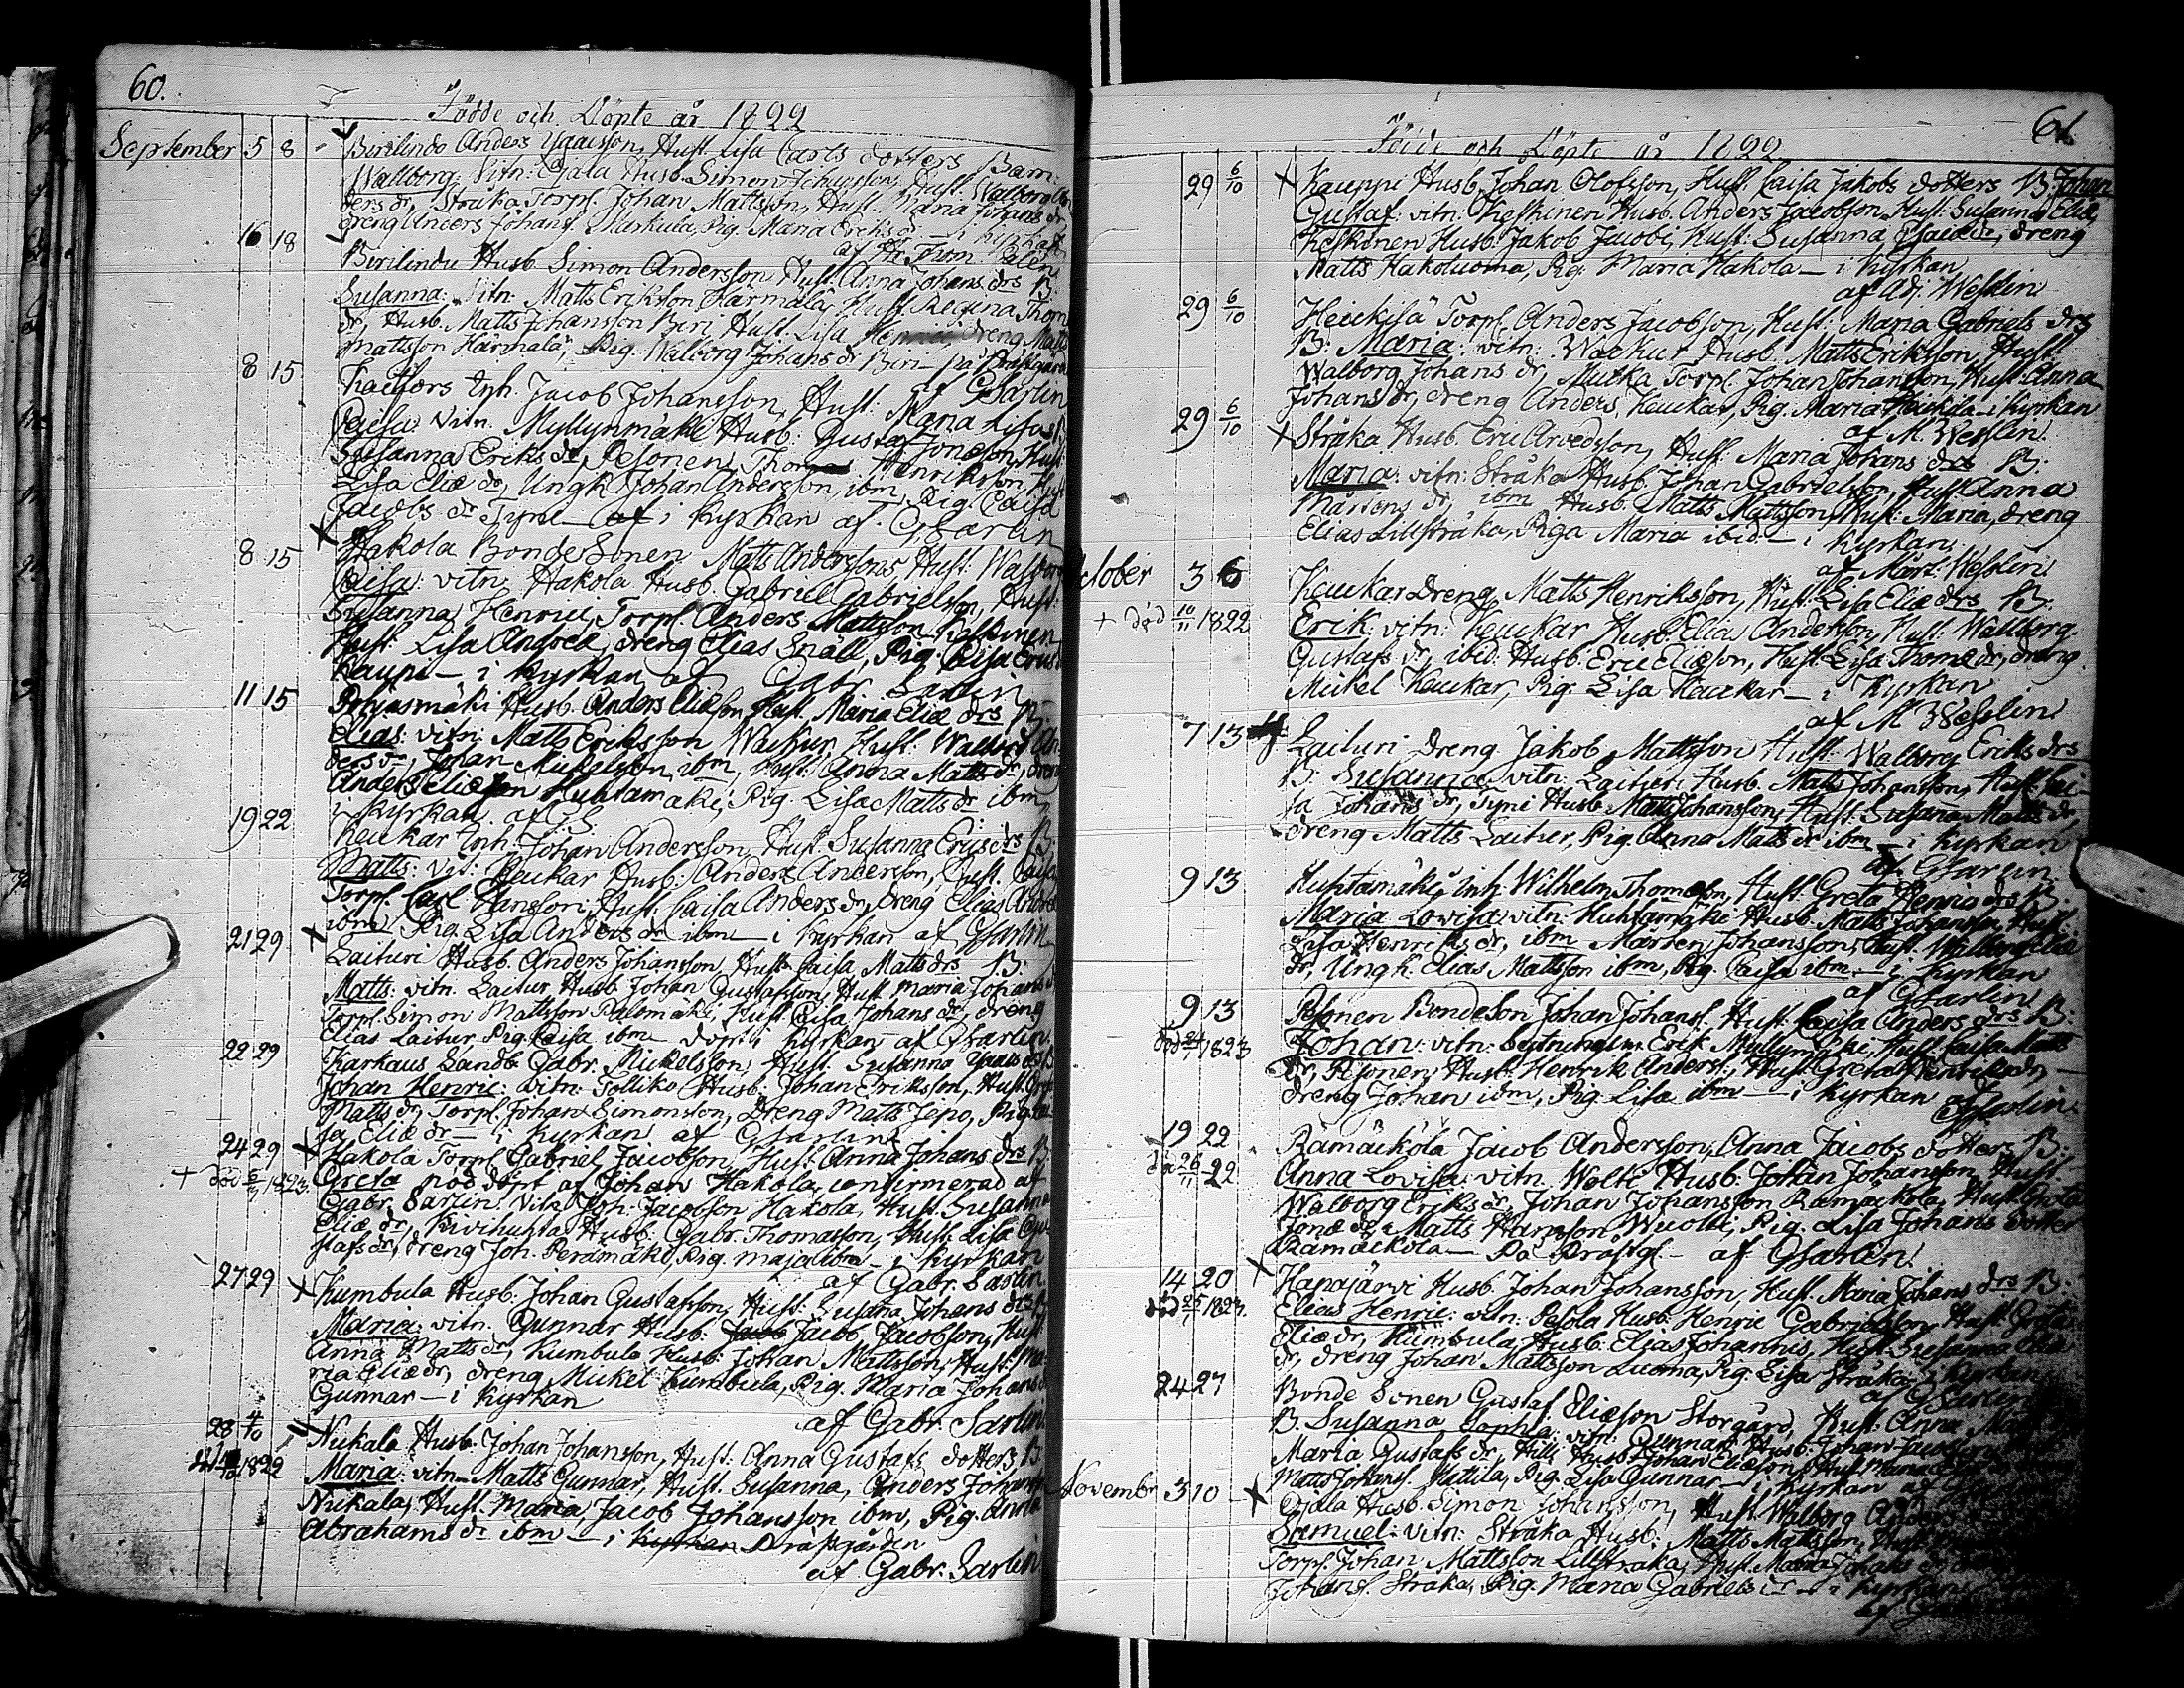 60.
Födde och Döpte år 1822
September 5 8 Birilindo Anders Husf. Lisa Carls dotters Barn:
Wallborg: Vitn: Ojala Husb. Simon Husf. Walborg An
ders dr, Stråka Torpf. Johan Mattsson, Husf. Maria Johans dr
dreng Anders Johansf. Markula, Pig. Maria Eriks dr i Kyrkan
af Hr Thom.
16 18 Birilindu Husb. Simon Andersson Husf. Anna Johans drs B.
Susanna: Vitn: Matts Eriksson Härmälä, Husf. Regina Thom
dr, Husb. Matts Johansson Biri Husf. Lisa Henrici, dreng Matts
Mattsson Härmälä, Pig. Walborg Johans dr Biri på Prästgården
af GSarlin
8 15 Inh. Jacob Johansson Husf. Maria Lisas B.
Caisa: Vitn. Myllymäki Husb. Gustaf Jonæson, Husf:
Susanna Eriks dr, Pesonen Thomas Henriksson, Husf
Lisa Eliæ dr, Ungk. Johan Andersson, ibm, Pig. Caisa
Jacobs dr Tyni i Kyrkan af. GSarlin
8 15 X Hakola Bonde Sonen Matts Anderssons Husf: Walborg
Caisa: vitn: Hakola Husb. Gabriel Gabrielson, Husf:
Susanna Henric, Torpf. Anders Mattsson Keskinen
Husf. Lisa Andreæ, dreng Elias Snäll, Pig. Caisa Erics
Kaupi i Kyrkan af Gabr. Sarlin
11 15 Husb. Anders Eliæson Husf. Maria Eliæ drs B.
Elias: vitn: Matts Eriksson Warkur Husf: Walborg An
ders dr, Johan Mickelsson, ibm, Husf: Anna Matts dr, dreng
Anders Eliæson Huhtamäki, Pig. Lisa Matts dr ibm
i Kyrkan. af GS
19 22 Keukar Inh. Johan Andersson, Husf. Susanna drs B.
Matts: vit: Keukar Husb: Anders Andersson, Husf. Caisa
Torpf. Carl Hansson, Husf: Caisa Anders dr, dreng Elias Andre
ibm, Pig. Lisa Anders dr ibm i Kyrkan af GSarlin
21 29 X Laituri Husb. Anders Johansson Husf. Caisa Matts drs B:
Matts: vitn. Laitur Husb Johan Gustafsson, Husf Maria Johans dr
Torpf. Simon Mattsson Palomäki, Husf Caisa Johans dr, dreng
Elias Laitur Pig. Caisa ibm döpt i Kyrkan af GSarlin
22 29 Karkaus Landb. Gabr. Mickelsson, Husf: Susanna drs B
Johan Henric: Vitn: Pollike Husb: Johan Eriksson, Husf.
Matts dr, Torpf. Johan Simonsson, Dreng Matts Jepo, Pig. Cai
sa Eliæ dr i Kyrkan af GSarlin
24 29 X Hakola Torpf. Gabriel Jacobson, Husf. Anna Johans drs B
+ död 1823. Greta nöddöpt af Johan Hakola, confirmerad af
Gabr. Sarlin. Vitn. Joh. Jacobson Hakola, Husf. Susanna
Eliæ dr, Kivihuhta Husb: Gabr. Thomasson, Husf: Lisa Gu
stafs dr, dreng Joh. Perämäki, Pig. Maja ibm i Kyrkan
af Gabr. Sarlin
27 29 X Kumbula Husb. Johan Gustafsson, Husf: Susana Johans drs B.
Maria: vitn. Gunnar Husb: Jacob Jacob Jacobson, Husf
Anna Matts dr, Kumbula Husb. Johan Mattsson, Husf: Ma
ria Eliæ dr, dreng Mickel Kumbula, Pig. Maria Johans dr
Gunnar i Kyrkan
af Gabr. Sarlin
28 4/10 Niekala Husb: Johan Johansson, Husf: Anna Gustafs dotters B.
1822 Maria: vitn Matts Gunnar, Husf. Susanna, Anders Johansson
Nikala, Husf. Maria, Jacob Johansson ibm, Pig. Anna
Abrahams dr ibm i Kyrkan Präpsgården
af Gabr. Sarlin
61.
Födde och Döpte år 1822
29 6/10 X Kauppi Husb. Johan Olofsson, Husf. Caisa Jakobs dotters B. Johan
Gustaf: vitn: Keskinen Husb. Anders Jacobson Husf: Susanna Eliæ,
Keskinen Husb. Jakob Jacobi, Husf: Susanna, dreng
Matts Hakoluoma, Pig. Maria Hakola i Kyrkan
af Adj. Wesslin
29 6/10 Heickilä Torpf. Anders Jacobson, Husf: Maria Gabriels drs
B: Maria: vitn: Warkur Husb. Matts Eriksson, Husf:
Walborg Johans dr, Mutka Torpf. Johan Johansson, Husf: Anna
Johans dr, dreng Anders Keuckar, Pig. Maria Heickila i Kyrkan
af M. Wesslin.
29 6/10 X Stråka Husb. Eric Arvedsson, Husf: Maria Johans drs B:
Maria: vitn: Stråka Husb. Johan Gabrielson, Husf. Anna
Mårtens dr, ibm Husb. Matts Mattsson, Husf: Maria, dreng
Elias Lillstråka, Piga Maria ibid. i Kyrkan.
af Mårt: Wesslin
October 3 6 Keuckar Dreng, Matts Henriksson, Husf: Lisa Eliæ drs B:
+ död 10/11 1822 Erik: vitn: Keuckar Husb. Elias Andersson, Husf: Wallborg
Gustafs dr, ibid: Husb. Eric Eliæson, Husf: Lisa Thomæ dr, dreng
Mickel Keuckar, Pig. Lisa Keuckar i Kyrkan
af M Wesslin
7 13 Laituri Dreng Jakob Mattsson Husf: Walborg Eriks drs
B: Susanna vitn: Laituri Husb. Matts Johansson, Husf: Cai
sa Johans dr, Tyni Husb. Matts Johansson, Husf: Susana Matts dr,
dreng Matts Laitur, Pig. Anna Matts dr ibm i Kyrkan
af. GSarlin
9 13 Huhtamäki Inh: Wilhelm Thomæson, Husf: Greta Henrics drs B.
Maria Lovisa: vitn: Huhtamäki Husb. Matts Johansson, Husf
Lisa Henriks dr, ibm Mårten Johansson, Husf. Walborg Eliæ
dr, Ungk. Elias Mattsson ibm, Pig. Caisa ibm i Kyrkan
af GSarlin
9 13 Pesonen Bonde Son Johan Johansf: Husf: Caisa Anders drs B:
död 1823 Johan: vitn: Erik Myllymäki, Husf. Caisa Matts
dr, Pesonen, Husb: Henrik Andersf: Husf: Greta Henriks dr,
dreng Johan ibm, Pig. Lisa ibm i Kyrkan af GSarlin.
19 22 Rämäckölä Jacob Andersson, Anna Jacobs dotters B:
död 26/11 22 Anna Lovisa: vitn. Wolti Husb: Johan Johansson, Husf:
Walborg Eriks dr, Johan Johansson Rämäckölä, Husf. Greta
Jonæ dr, Matts Hansson Wuolti, Pig. Lisa Johans dotter
Rämäckölä På Präftgf. af GSarlin.
14 20 X Hapajärvi Husb. Johan Johansson, Husf: Maria Johans drs B:
död 1823. Elias Henric: vitn: Pesola Husb. Henric Gabrielsson, Husf. Greta
Eliæ dr, Kumbula, Husb: Elias Johannis, Husf: Susanna Eliæ
dr, dreng Johan Mattsson Luoma, Pig. Lisa Stråka i Kyrkan
af GSarlin
24 27 Bonde Sonen Gustaf Eliæson Storgård, Husf: Anna
B. Susanna Sophia: vitn: Gunnar Husb: Johan Jacobson
Maria Gustafs dr, Hilli Husb. Johan Eliæson, Husf. Maria
Matts Johansf. Hattila, Pig. Lisa Gunnar i Kyrkan af
November 3 10 X Ojala Husb. Simon Johansson, Husf. Walborg Anders
Samuel: vitn: Stråka Husb: Matts Mattsson, Husf:
Torpf. Johan Mattsson Lillstråka, Husf: Maria Johans
Johansf. Stråka, Pig. Maria Gabriels dr i Kyrkan
af